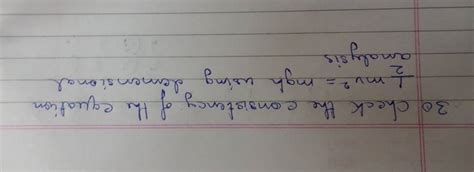 30 Check the consistency of the equation
1/2 mv² = mgh using demensional
analysis